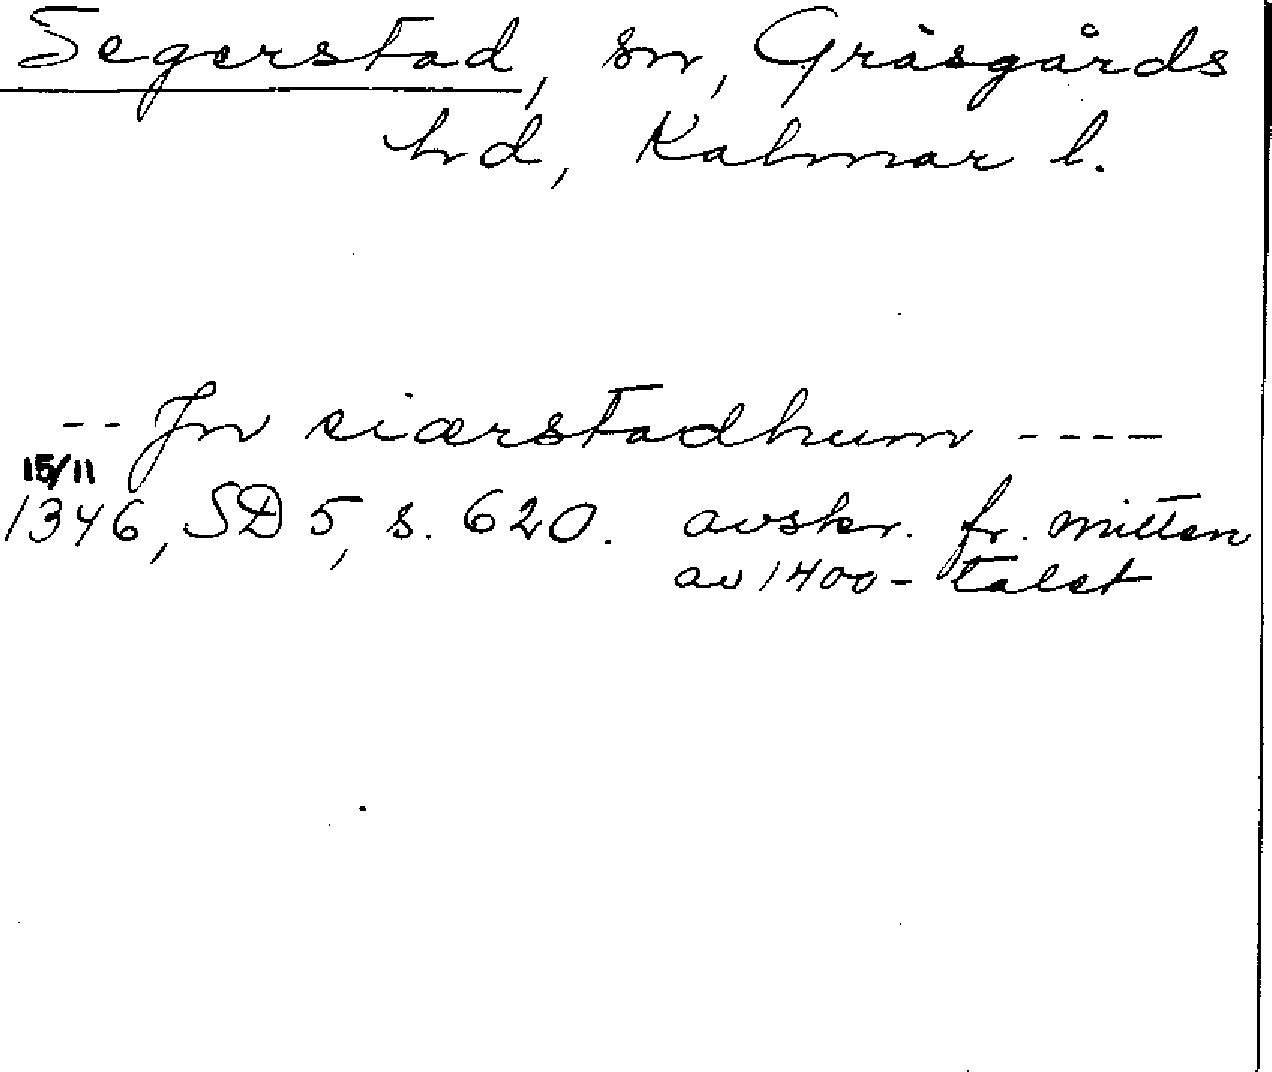 Segerstad, sn, Gräsgårds
hd, Kalmar l.
-- Jn siærstadhum ----
15/11
1346, SD 5, s. 620. avskr. fr. mitten
av 1400-talet